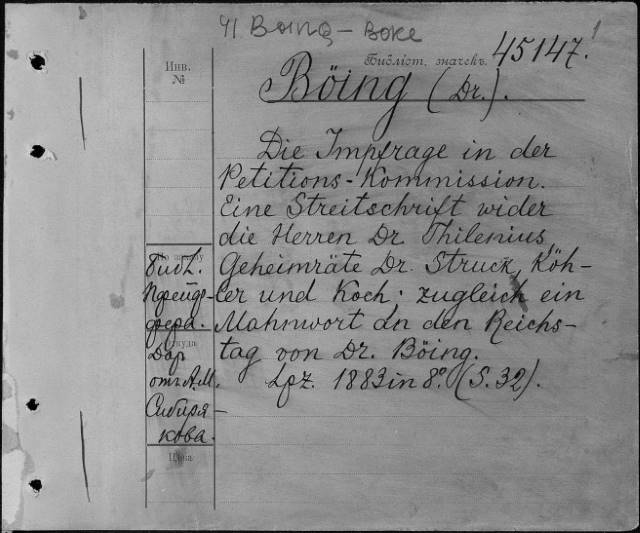 41 Boing – Boke
1
Библіот. значекъ 45147.
Инв.
№
Böing (Dr.).
Die Impfrage in der
Petitions-Kommission.
Eine Streitschrift wider
die Herren Dr. Thilenius,
Geheimräte Dr. Struck, Köh-
ler und Koch; zugleich ein
Mahnwort an den Reichs-
tag von Dr. Böing.
Lpz. 1883 in 8º. (S. 32).
Библ.
Пфейф-
фера.
Откуда
Дар
отъ А.М.
Сибиря-
кова.
Цѣна